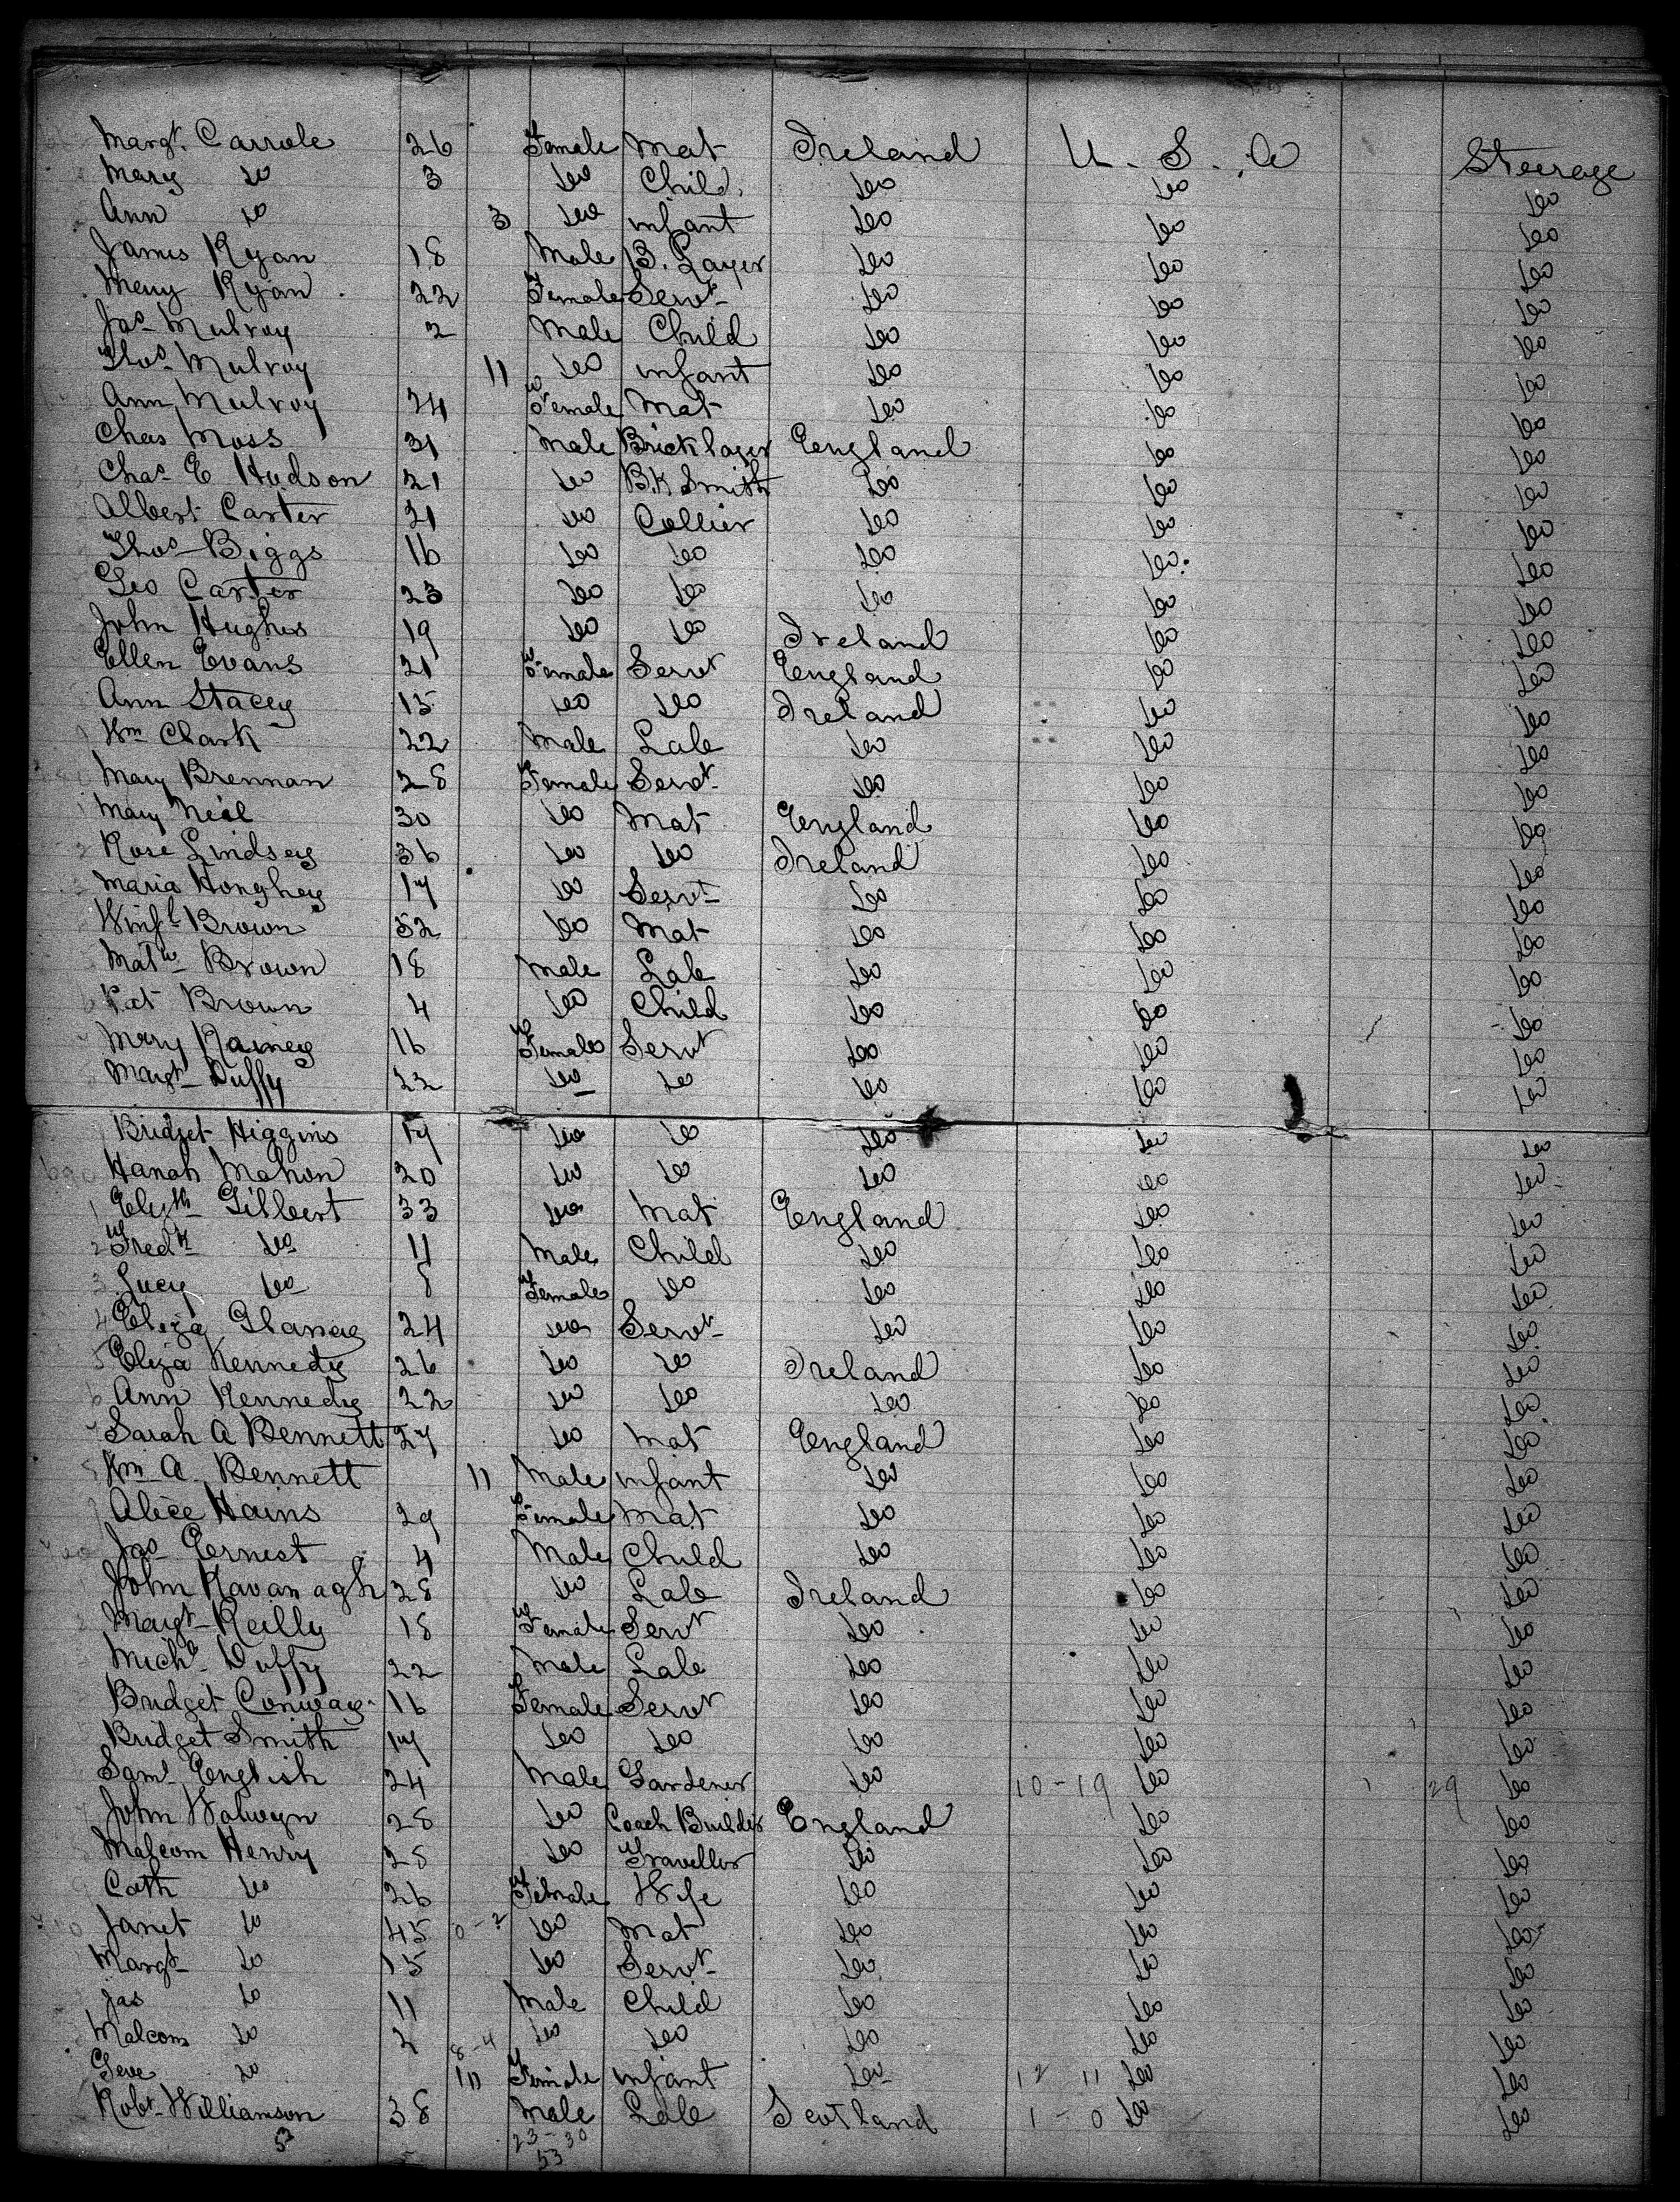 Margt. Carrole 26 Female Mat Ireland U. S. A Steerage
Mary do 3 do Child. do do do
Ann do 3 do infant do do do
James Ryan 18 Male B. Layer do do do
Mary Ryan 22 Female Servt do do do
Jas Mulroy 2 Male Child do do do
Thos Mulroy 11 do infant do do do
Ann Mulroy 24 Female Mat do do do
Chas Moss 31 Male Bricklayer England do do
Chas E Hudson 21 do B.K Smith do do do
Albert Carter 21 do Collier do do do
Thos Biggs 16 do do do do do
Geo Carter 23 do do do do do
John Hughes 19 do do Ireland do do
Ellen Evans 21 Female Servt England do do
Ann Stacey 15 do do Ireland do do
Wm Clark 22 Male Lab do do do
Mary Brennan 28 Female Servt do do do
Mary Neil 30 do Mat England do do
Rose Lindsey 36 do do Ireland do do
Maria Honghey 17 do Servt do do do
Brown 52 do Mat do do do
Matw Brown 18 Male Lab do do do
Pat Brown 4 do Child do do do
Mary Rainey 16 Female Servt do do do
Margt Duffy 22 do do do do do
Bridget Higgins 17 do do do do do
690 Hanah Mahon 20 do do do do do
1 Elizth Gilbert 33 do Mat England do do
2 Fredk do 11 Male Child do do do
3 Lucy do 8 Female do do do do
4 Eliza 24 do Servt do do do
5 Eliza Kennedy 26 do do Ireland do do
6 Ann Kennedy 22 do do do do do
7 Sarah A Bennett 27 do Mat England do do
8 Wm A. Bennett 11 Male infant do do do
9 Alice Hains 29 Female Mat do do do
Jas Ernest 4 Male Child do do do
John Kavanagh 28 do Lab Ireland do do
Margt Reilly 18 Female Servt do do do
Michl Duffy 22 Male Lab do do do
Bridget Conway 16 Female Servt do do do
Bridget Smith 17 do do do do do
Saml English 24 Male Gardener do 10-19 do 29 do
John Walwyn 28 do Coach Builder England do do
Malcom Henry 28 do Traveller do do do
Cath do 26 Female Wife do do do
Janet do 45 0-2 do Mat do do do
Margt do 15 do Servt do do do
Jas do 11 Male Child do do do
Malcom do 2 8-4 do do do do do
do 10 Female infant do 12 11 do do
Robt Williamson 38 Male Lab Scotland 1-0 do do
53 23-30
53